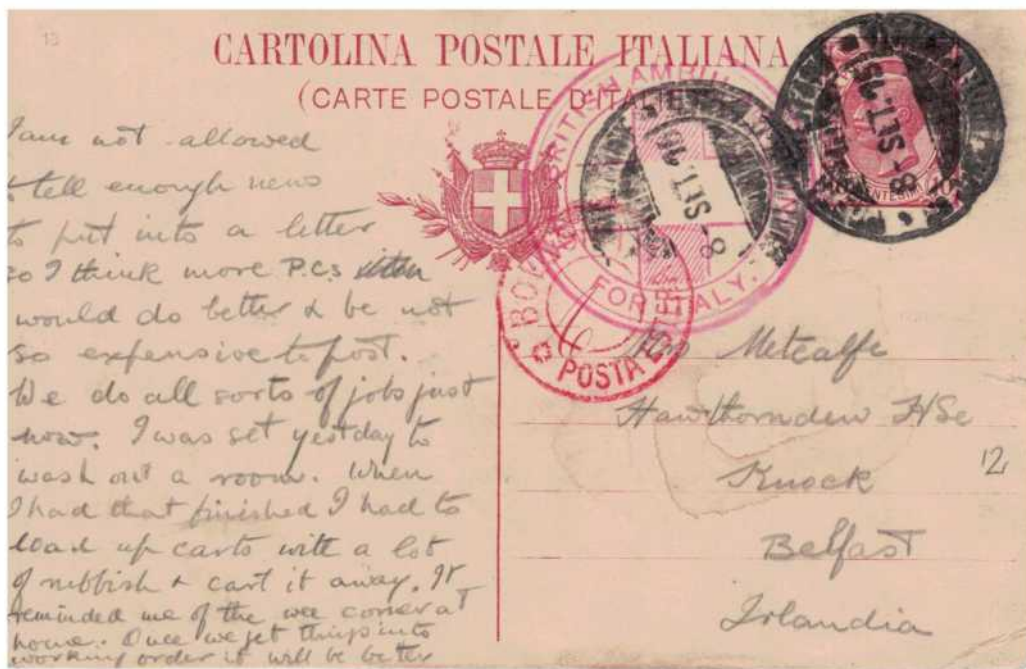 13
CARTOLINA POSTALE ITALIANA
(CARTE POSTALE D'ITALIE)
I am not allowed
t tell enough news
to put into a letter
so I think more P.Cs
would do better & be not
so expensive to post.
We do all sorts of jobs just
now. I was set yestday to
wash out a room. When
I had that finished I had to
load up carts with a lot
of rubbish & cart it away. It
reminded me of the wee corner at
home. Once we get things into
working order it will be better
BRITISH AMBULANCE
FOR ITALY.
8-SET.16
8-SET.16
POSTA
Metcalfe
Hawthornden HSe
Knock
12
Belfast
Irlandia